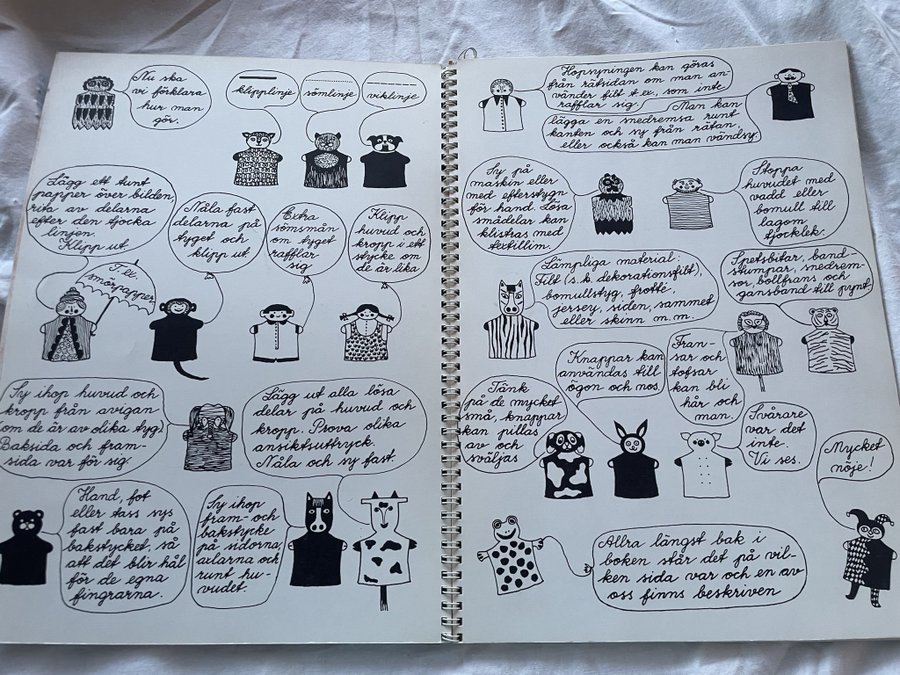 Nu ska
vi förklara
hur man
gör.
klipplinje
sömlinje
viklinje
Lägg ett tunt
papper över bilden,
rita av delarna
efter den tjocka
linjen.
Klipp ut.
Nåla fast
delarna på
tyget och
klipp ut.
Extra
sömsmån
om tyget
rafflar
sig
Klipp
huvud och
kropp i ett
stycke om
de är lika
T. ex.
smörpapper
Sy ihop huvud och
kropp från avigan
om de är av olika tyg.
Baksida och fram-
sida var för sig.
Lägg ut alla lösa
delar på huvud och
kropp. Prova olika
ansiktsuttryck.
Nåla och sy fast.
Hand, fot
eller tass sys
fast bara på
bakstycket, så
att det blir hål
för de egna
fingrarna.
Sy ihop
fram- och
bakstycke
på sidorna,
ärmarna och
runt hu-
vudet.
Hopsyningen kan göras
från rätsidan om man an-
vänder filt t. ex. som inte
rafflar sig.
Man kan
lägga en snedremsa runt
kanten och sy från rätan,
eller också kan man vändsy.
Sy på
maskin eller
med efterstygn
för hand. Lösa
smådelar kan
klistras med
textillim.
Stoppa
huvudet med
vadd eller
bomull till
lagom
tjocklek.
Lämpliga material:
Filt (s.k. dekorationsfilt),
bomullstyg, frotté,
jersey, siden, sammet
eller skinn m.m.
Spetsbitar, band-
stumpar, snedrem-
sor, bollfrans och
gansband till prynt.
Fran-
sar och
tofsar
kan bli
hår och
man.
Knappar kan
användas till
ögon och nos.
Tänk
på de mycket
små, knappar
kan pillas
av och
sväljas
Svårare
var det
inte.
Vi ses.
Mycket
nöje!
Allra längst bak i
boken står det på vil-
ken sida var och en av
oss finns beskriven